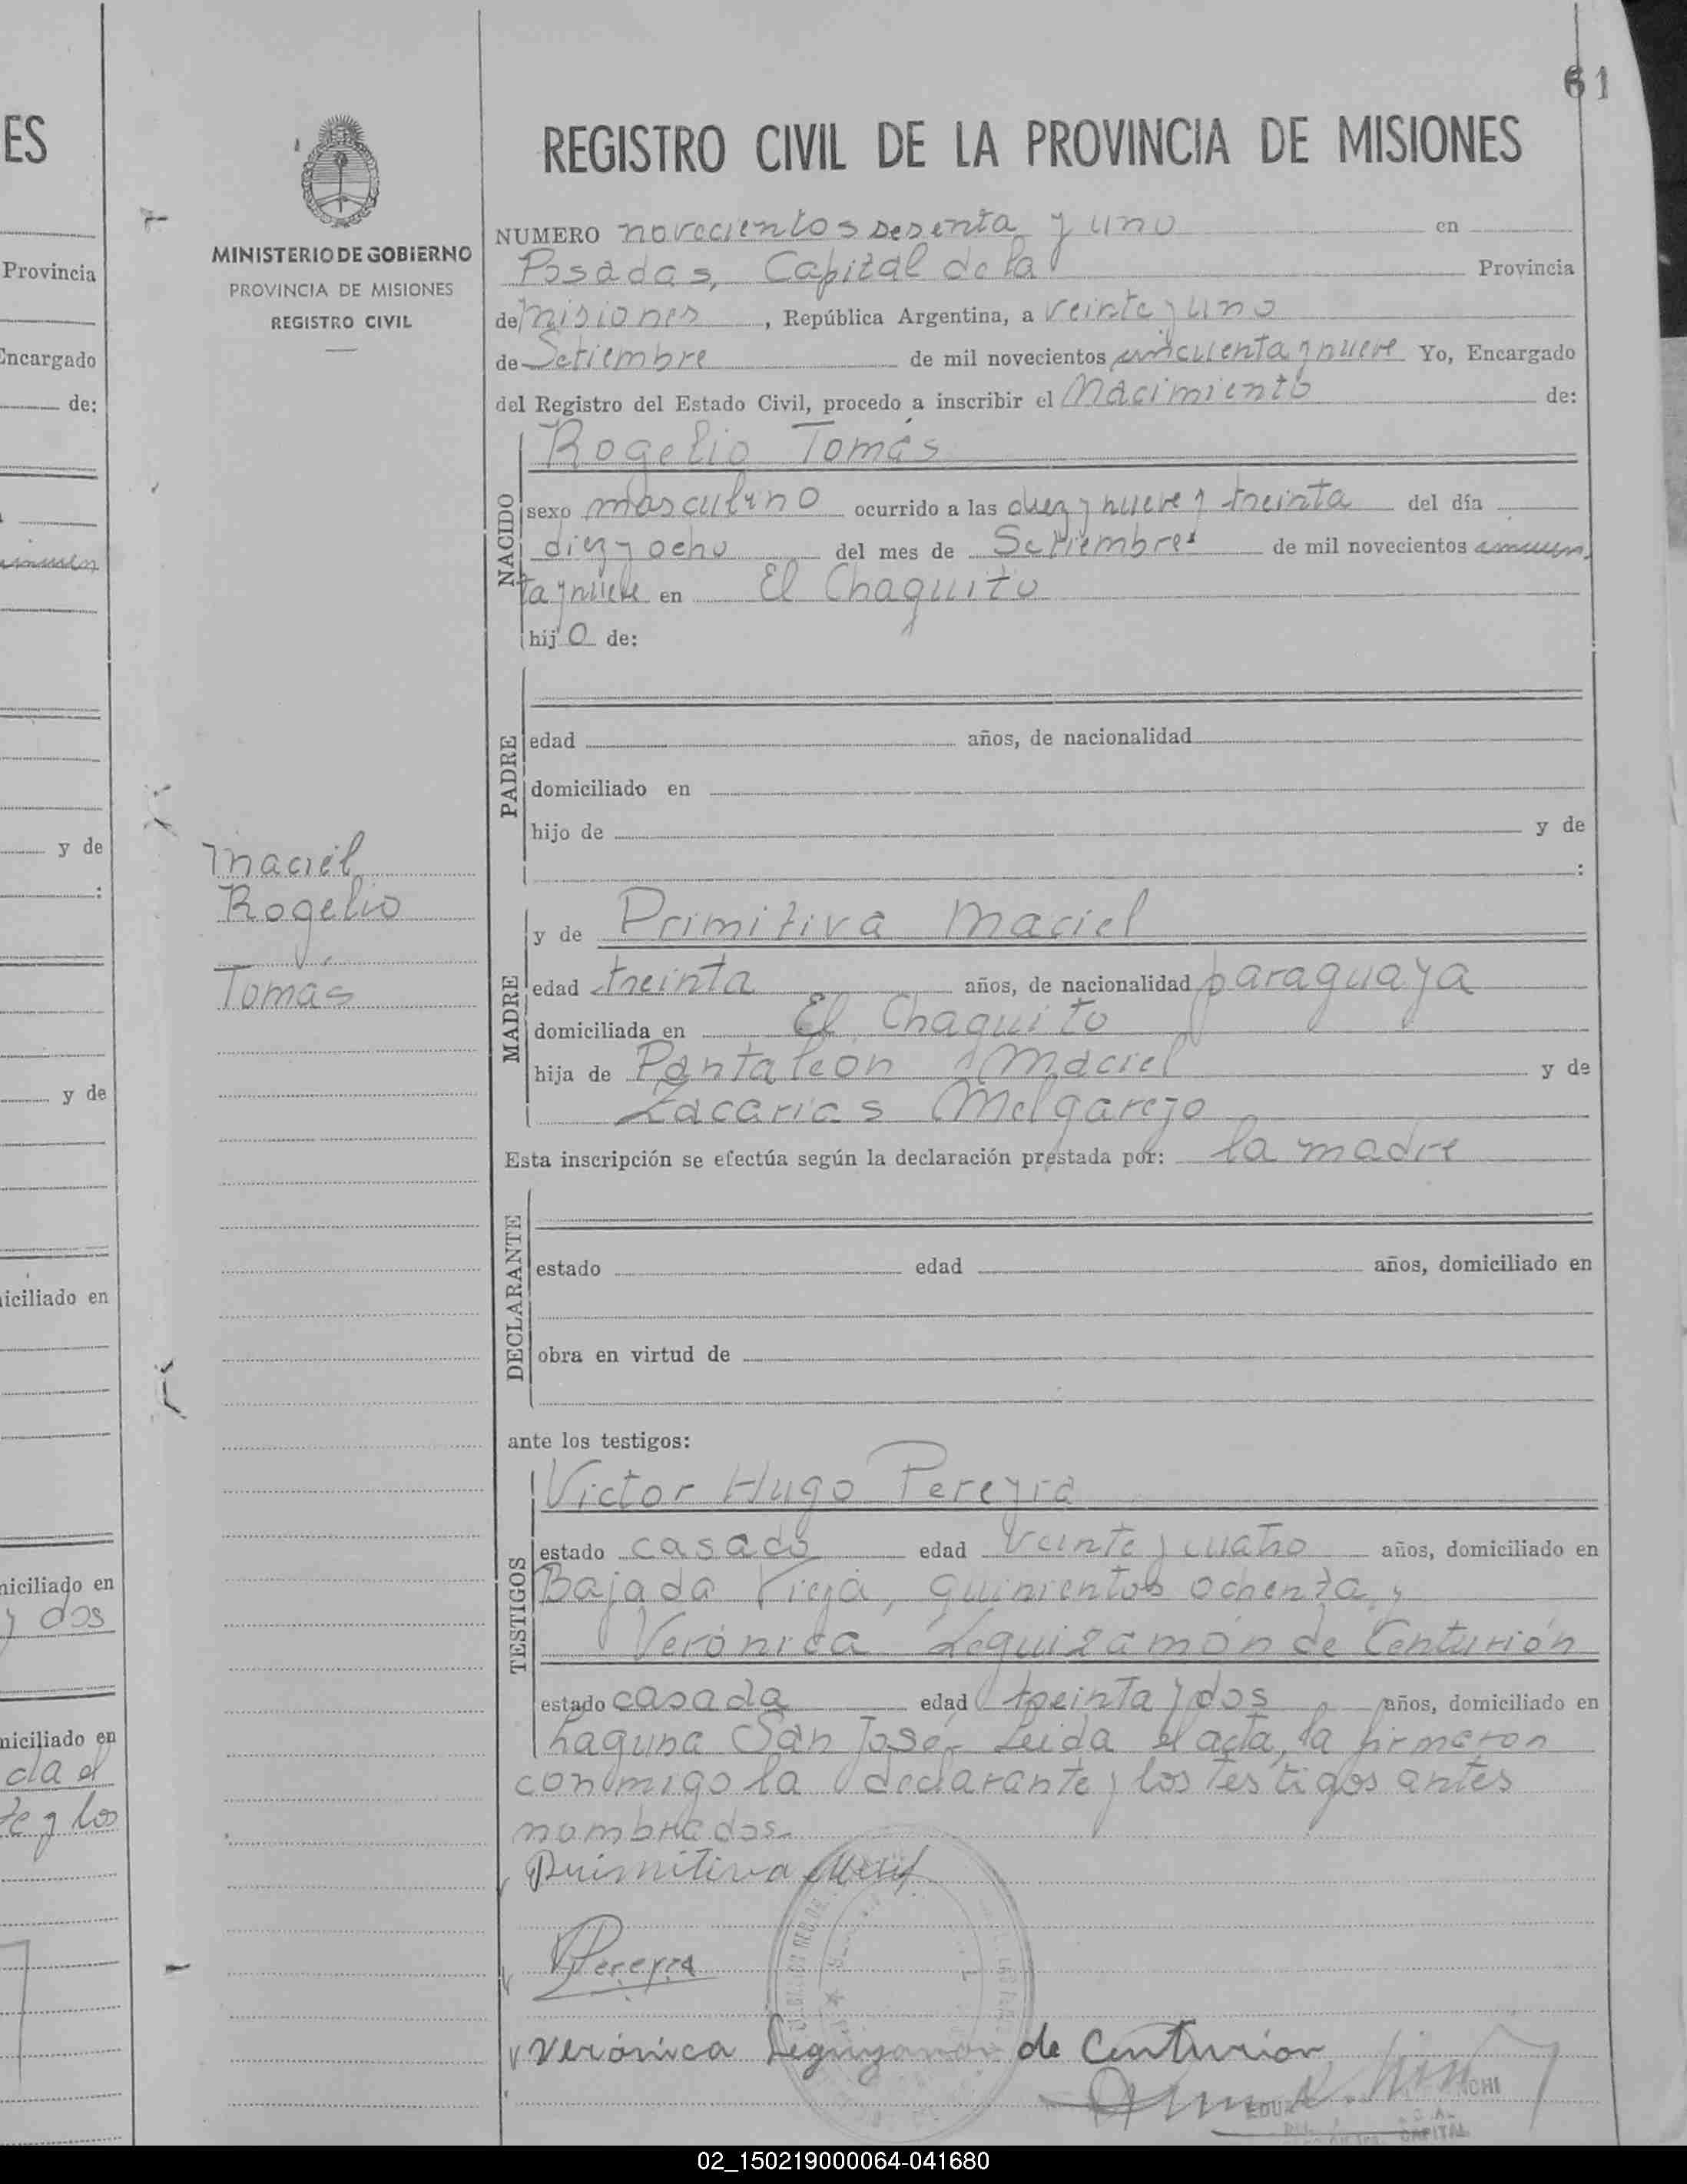 61
ES
REGISTRO CIVIL DE LA PROVINCIA DE MISIONES
MINISTERIO DE GOBIERNO
PROVINCIA DE MISIONES
REGISTRO CIVIL
Provincia
Encargado
de:
y de
:
y de
iciliado en
niciliado en
y dos
niciliado en
da el
te y los
Maciel
Rogelio
Tomás
NUMERO novecientos sesenta y uno en
Posadas, Capital de la Provincia
de Misiones, República Argentina, a veinte y uno
de Setiembre de mil novecientos cincuenta y nueve Yo, Encargado
del Registro del Estado Civil, procedo a inscribir el Nacimiento de:
NACIDO
Rogelio Tomás
sexo masculino ocurrido a las diez y nueve y treinta del día
diez y ocho del mes de Setiembre de mil novecientos cincuen
ta y nueve en El Chaquito
hijo de:
PADRE
edad años, de nacionalidad
domiciliado en
hijo de y de
:
MADRE
y de Primitiva Maciel
edad treinta años, de nacionalidad paraguaya
domiciliada en El Chaquito
hija de Pantaleon Maciel y de
Zacarias Melgarejo
Esta inscripción se efectúa según la declaración prestada por: la madre
DECLARANTE
estado edad años, domiciliado en
obra en virtud de
ante los testigos:
TESTIGOS
Victor Hugo Pereyra
estado casado edad veinte y cuatro años, domiciliado en
Bajada Vieja, quinientos ochenta y
Verónica Leguizamón de Centurión
estado casada edad treinta y dos años, domiciliado en
Laguna San José.- Leida el acta, la firmaron
conmigo la declarante y los testigos antes
nombrados.-
Primitiva
VPereyra
Verónica Leguizamon de Centurion
CAPITAL
02_150219000064-041680